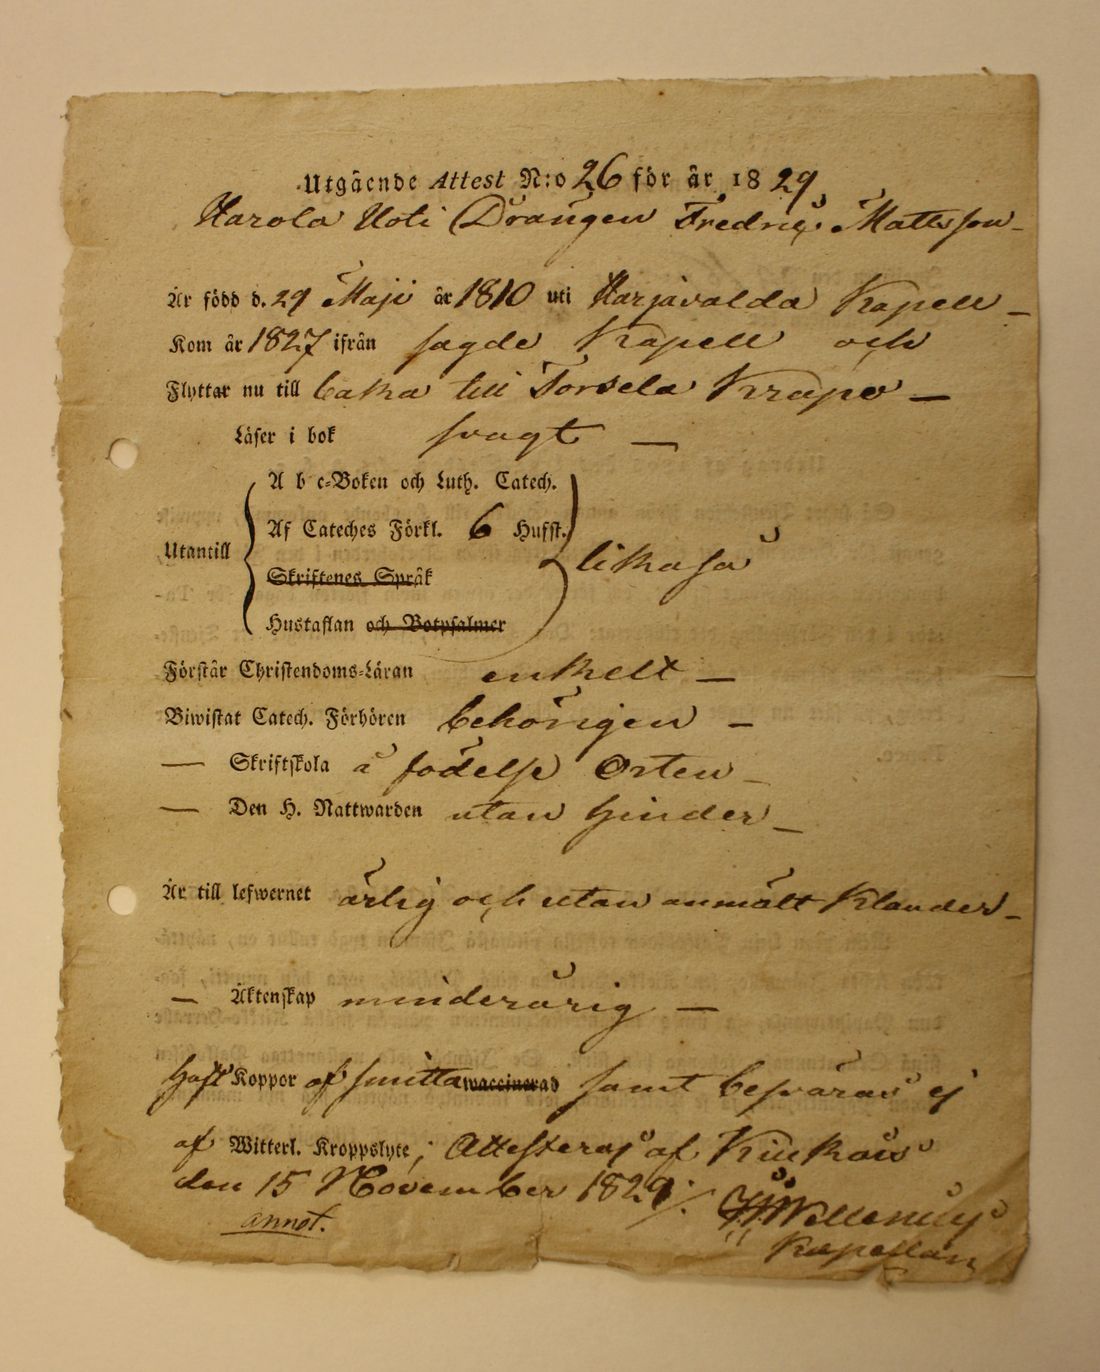 Utgående Attest N:o 26 för år 1829
Harola Uoti Drängen Fredric Mattsson
Är född d. 29 Maji år 1810 uti Harjavalda Kapell
Kom år 1827 ifrån sagde Kapell och
Flyttar nu till baka till Torsela Krapo
Läser i bok svagt
A b c-Boken och Luth. Catech.
Af Cateches Förkl. 6 Hufst.
Utantill likaså
Skriftenes Språk
Hustaflan och Botpsalmer
Förstår Christendoms-Läran enkelt
Biwistat Catech. Förhören behörigen
— Skriftskola å födelse Orten
— Den H. Nattwarden utan hinder
Är till lefwernet ärlig och utan anmält Klander
— Äktenskap minderårig
Haft Koppor af smitta waccinerad samt besväras ej
af Witterl. Kroppslyte; Attesteras af Kiukais
den 15 November 1829
annot.
Kapellan